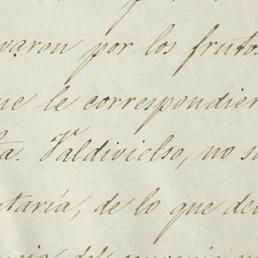 varon por los frutos
ue le correspondier
ta. Valdivielso, no s
taría, de lo que de